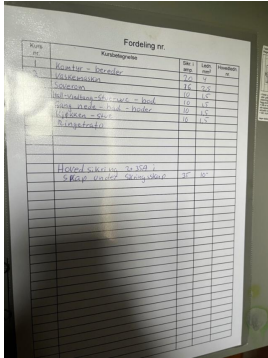 Fordeling nr.
Kurs nr. Kursbetegnelse Sikr. i amp. Ledn. mm² Hovedledn. nr.
1 Komfyr - bereder 20 4
2 Vaskemaskin 16 2,5
Soverom 10 1,5
bod 10 1,5
Gang nede - bad - boder 10 1,5
Kjøkken - Stue 10 1,5
Ringetrafo
Hovedsikring 2x35A i
skap under Sikringsskap 35 10